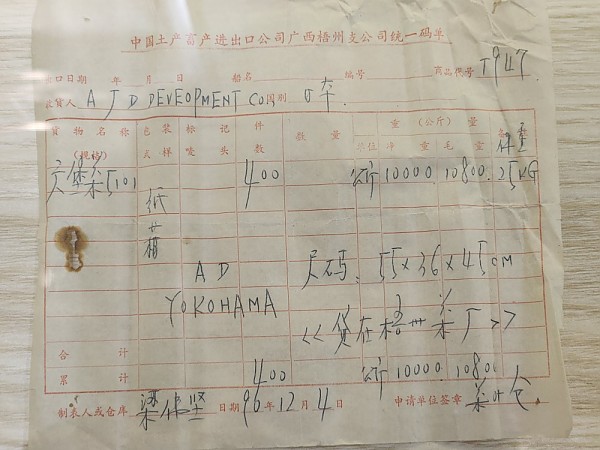 中国土产畜产进出口公司广西梧州支公司统一码单
出口日期 年 月 日 船名 编号 商品代号 T947
收货人 A J D DEVEOPMENT CON 国别 日本
货物名称 包装 标记 件 数量 重(公斤)量 备
(规格) 式样 唛头 数 单位 净重 毛重 件重
六堡茶 5101 400 公斤 10000. 10800. 25KG
纸
箱
A D 尺码: 55×36×45cm
YOKOHAMA
<<货在梧州茶厂>>
合计
累计 400 公斤 10000. 10800
制表人或仓库 梁 坚 日期 96年12月4日 申请单位签章 茶叶仓